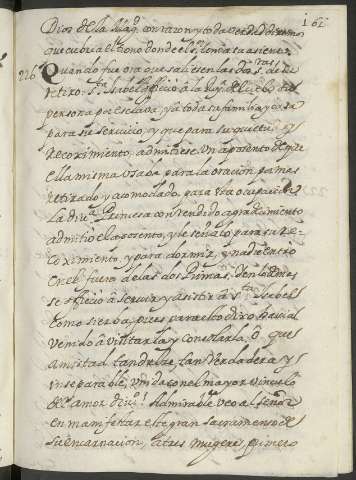 161
Dios de la Mag.d con razon y toda verdad diremos
que cubria el trono donde el Sr. tenia su asiento
226 Quando fue ora que saliesen las dos s.ras de su
retiro, s.ta Isabel ofrecio a la Reyna del cielo su
persona por esclava, y a toda su familia y casa
para su servicio, y que para su quietud y
Recoximiento, admitiese un aposento de que
ella misma usaba para la oracion por mas
retirado y acomodado para esta ocupacion.
La divi.a Princesa con rendido agradecimiento
admitio el aposento, y le señalo para su re-
coximiento y para dormir, y nadie entro
en el, fuera de las dos Primas, en lo demas
se ofrecio a servir y asistir a s.ta Isabel
como sierba, pues para esto dixo havia
venido a visitarla y consolarla. O que
amistad tan dulce, tan verdadera y
inseparable, unida con el mayor vinculo
del amor divi.o! Admirable veo al señor
en manifestar este gran sacramento de
su encarnacion, a tres mugeres primero